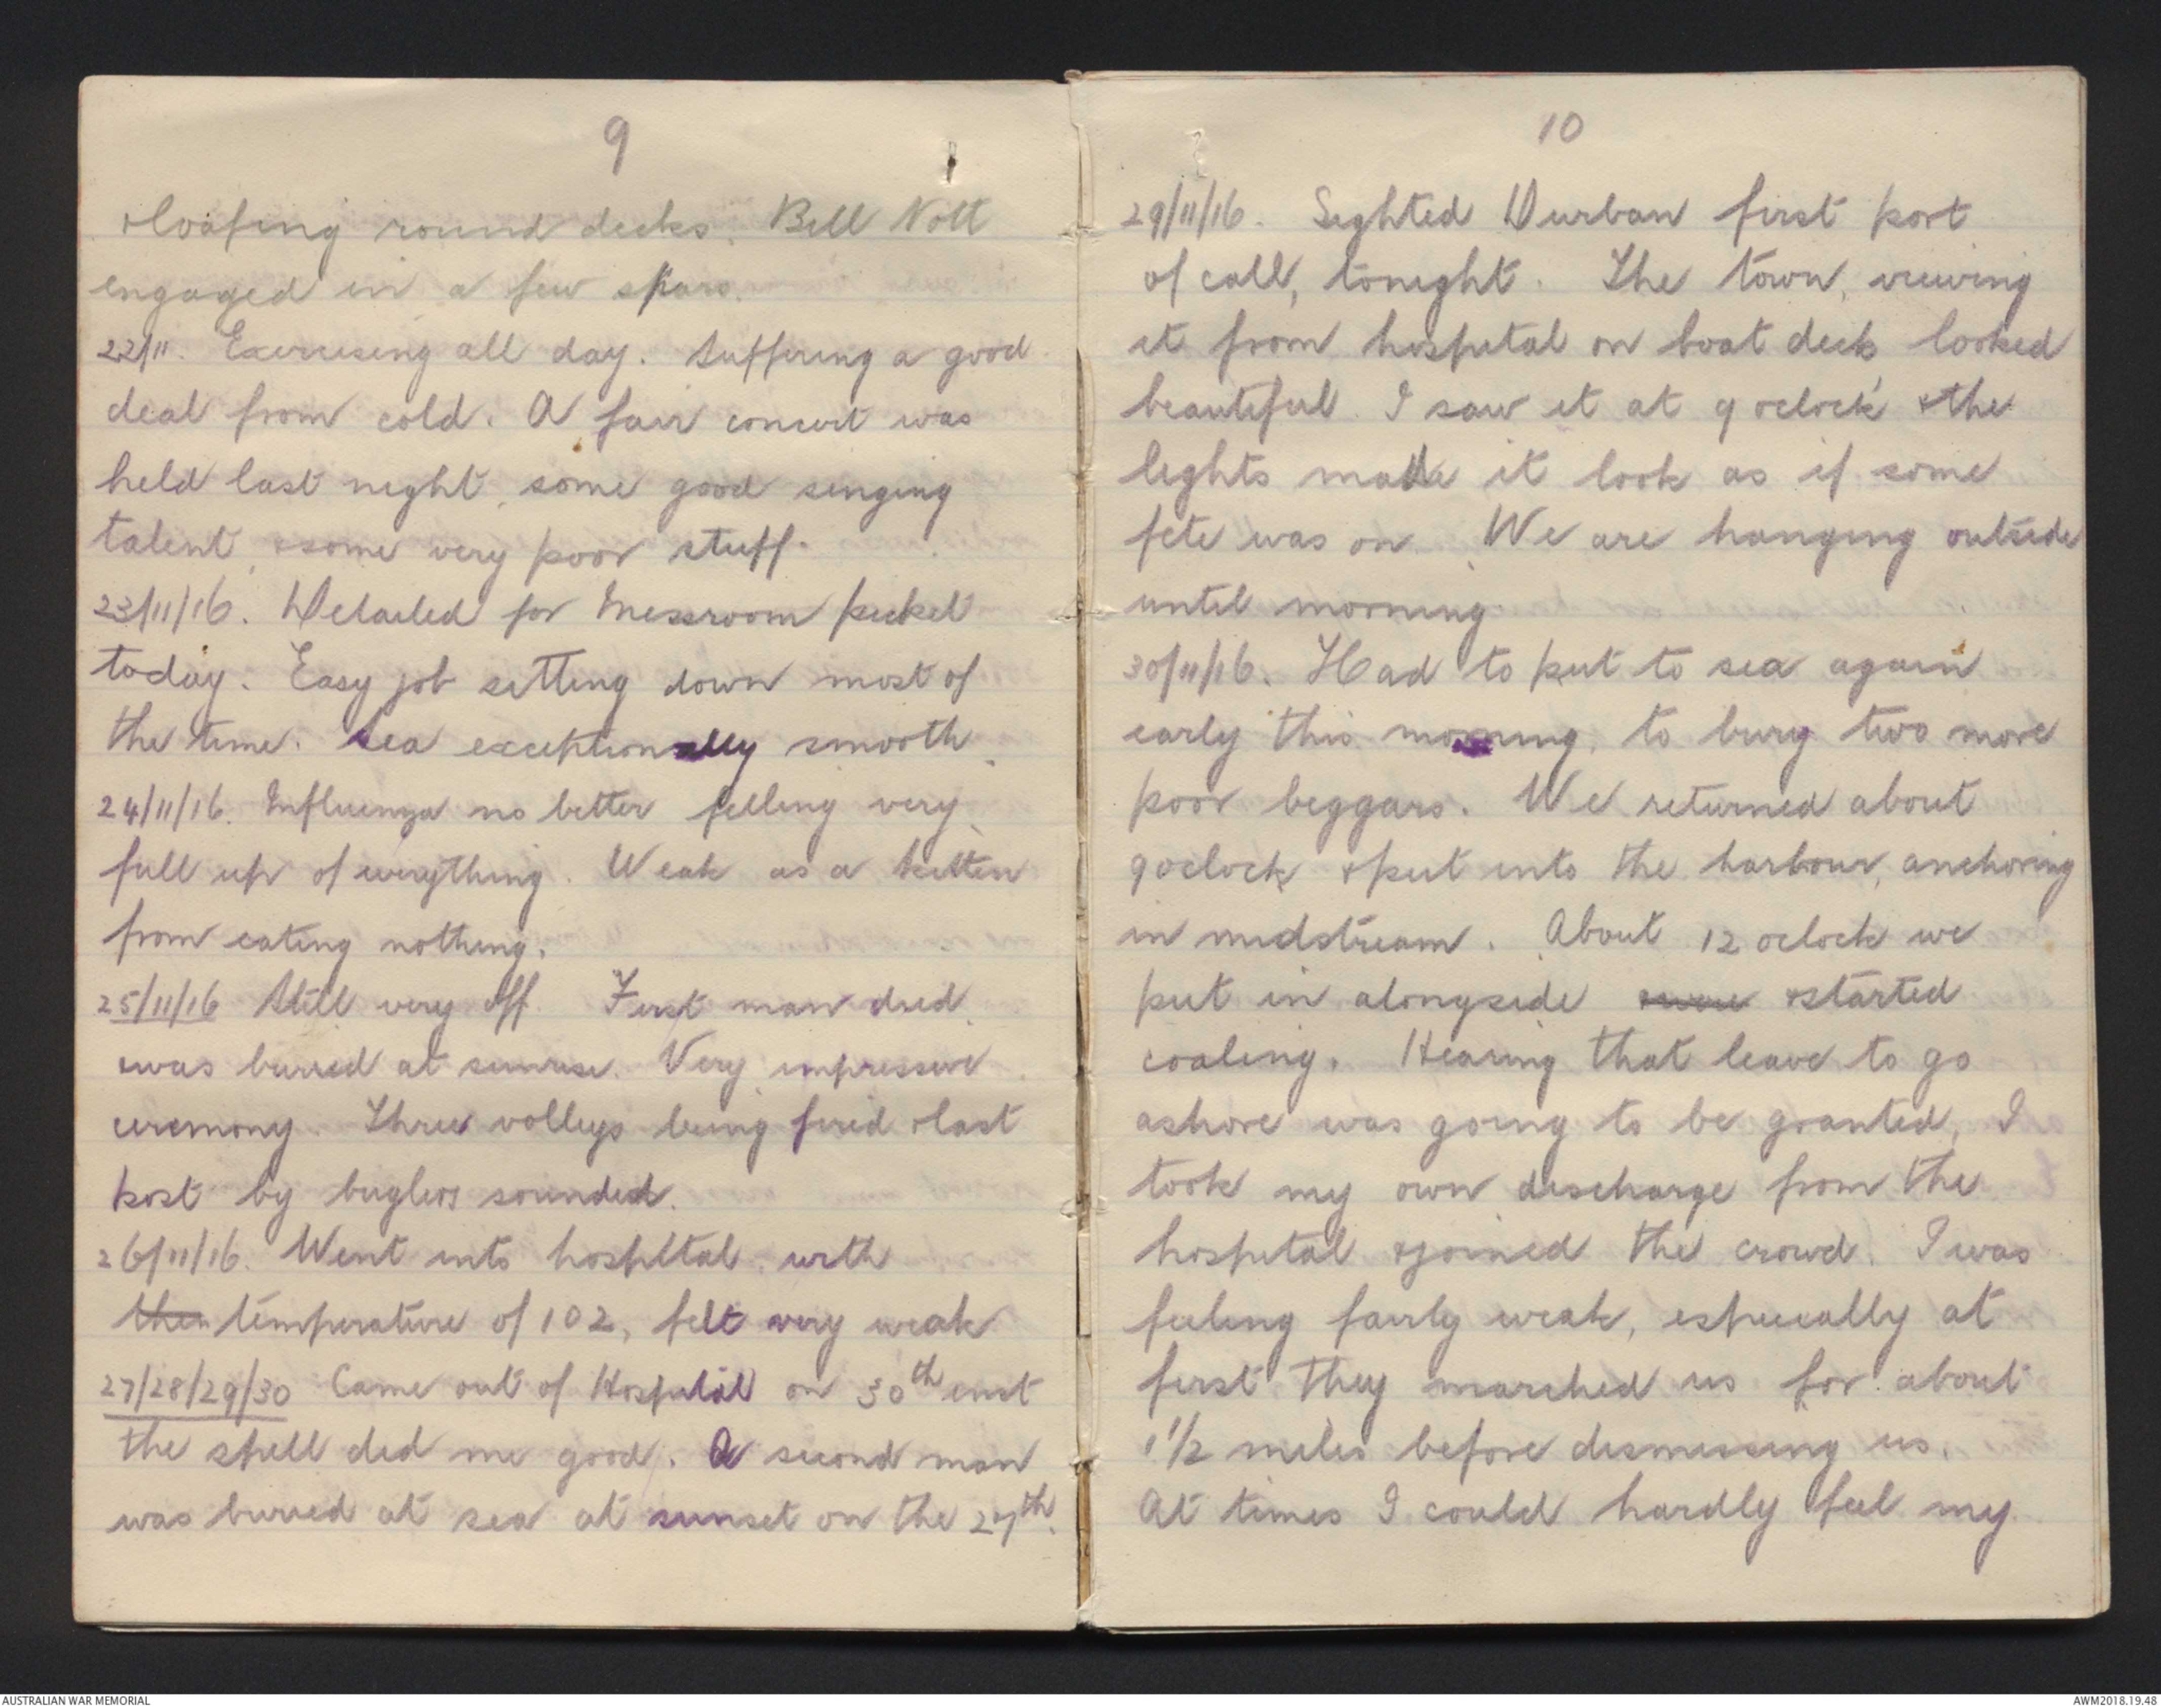 9
& loafing round decks. Bill Nott
engaged in a few spars.
22/11. Exercising all day. Suffering a good
deal from cold. A fair concert was
held last night, some good singing
talent, & some very poor stuff.
23/11/16. Detailed for Messroom picket
today. Easy job sitting down most of
the time. Sea exceptionally smooth.
24/11/16. Influenza no better felling very
full up of everything. Weak as a kitten
from eating nothing.
25/11/16 Still very off. First man died
& was buried at sunrise. Very impressive
ceremony. Three volleys being fired & last
post by buglers sounded.
26/11/16. Went into hospital with
then temperature of 102, felt very weak
27/28/29/30 Came out of Hospital on 30th inst
the spell did me good. A second man
was buried at sea at sunset on the 27th.
10
29/11/16. Sighted Durban first port
of call, tonight. The town, viewing
it from hospital on boat deck looked
beautiful. I saw it at 9 oclock & the
lights made it look as if some
fete was on. We are hanging outside
until morning.
30/11/16. Had to put to sea again
early this morning, to bury two more
poor beggars. We returned about
9 oclock & put into the harbour, anchoring
in midstream. About 12 oclock we
put in alongside & started
coaling. Hearing that leave to go
ashore was going to be granted, I
took my own discharge from the
hospital & joined the crowd. I was
feeling fairly weak, especially at
first they marched us for about
1 1/2 miles before dismissing us.
At times I could hardly feel my
AUSTRALIAN WAR MEMORIAL
AWM2018.19.48